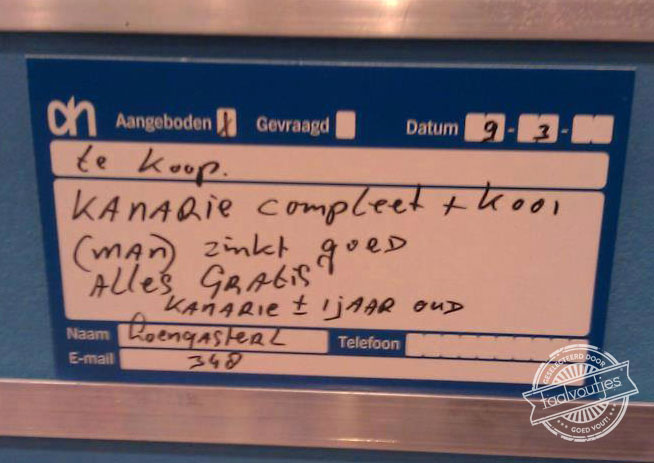 ah Aangeboden x Gevraagd Datum 9 - 3 -
te koop.
KANARIE compleet + kooi
(MAN) zinkt goed
ALLES GRATIS
KANARIE ± 1 JAAR OUD
Naam Telefoon
E-mail 348
GESELECTEERD DOOR
taalvoutjes
GOED VOUT!